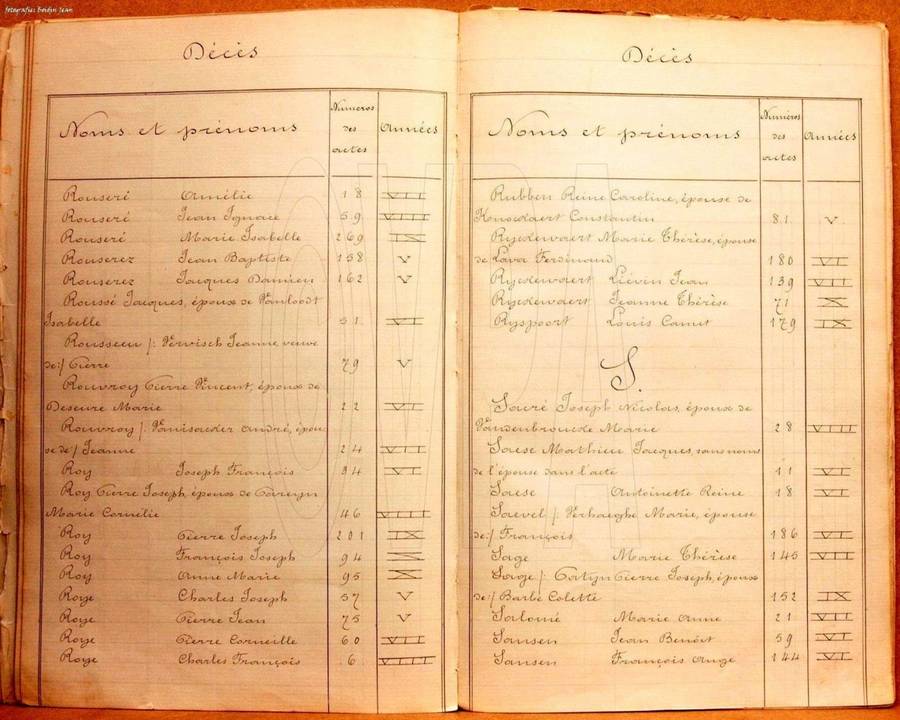 fotografie: Boidin Jean
Décès
Noms et prénoms Numéros des actes Années
Rouseré Amélie 18 VII
Rouseré Jean Ignace 59 VIII
Rouseré Marie Isabelle 269 IX
Rouserez Jean Baptiste 158 V
Rouserez Jacques Damien 162 V
Roussé Jacques, époux de Vanloodt
Isabelle 51 VI
Rousseeu /: Vervisch Jeanne, veuve
de:/ Pierre 79 V
Rouvroy Pierre Vincent, époux de
Deseure Marie 22 VI
Rouvroy /: Vanisacker André, épou
se de:/ Jeanne 24 VII
Roy Joseph François 94 VI
Roy Pierre Joseph, époux de Pareyn
Marie Cornélie 46 VIII
Roy Pierre Joseph 201 IX
Roy François Joseph 94 X
Roy Anne Marie 95 X
Roye Charles Joseph 57 V
Roye Pierre Jean 75 V
Roye Pierre Corneille 60 VII
Roye Charles François 6 VIII
Décès
Noms et prénoms Numéros des actes Années
Rubben Reine Caroline, épouse de
Knockaert Constantin 81 V
Ryckewaert Marie Thérèse, épouse
de Lava Ferdinand 180 VI
Ryckewaert Liévin Jean 139 VII
Ryckewaert Jeanne Thérèse 71 X
Ryspoort Louis Canut 179 IX
S.
Sacré Joseph Nicolas, époux de
Vandenbroucke Marie 28 VIII
Saese Mathieu Jacques, sans noms
de l'épouse dans l'acte 11 VI
Saese Antoinette Reine 18 VI
Saevel /: Verhaeghe Marie, épouse
de:/ François 186 VI
Sage Marie Thérèse 145 VII
Sage /: Catyn Pierre Joseph, époux
de:/ Barbe Colette 152 IX
Salomé Marie Anne 21 VII
Sansen Jean Benoit 59 VI
Sansen François Ange 144 VI